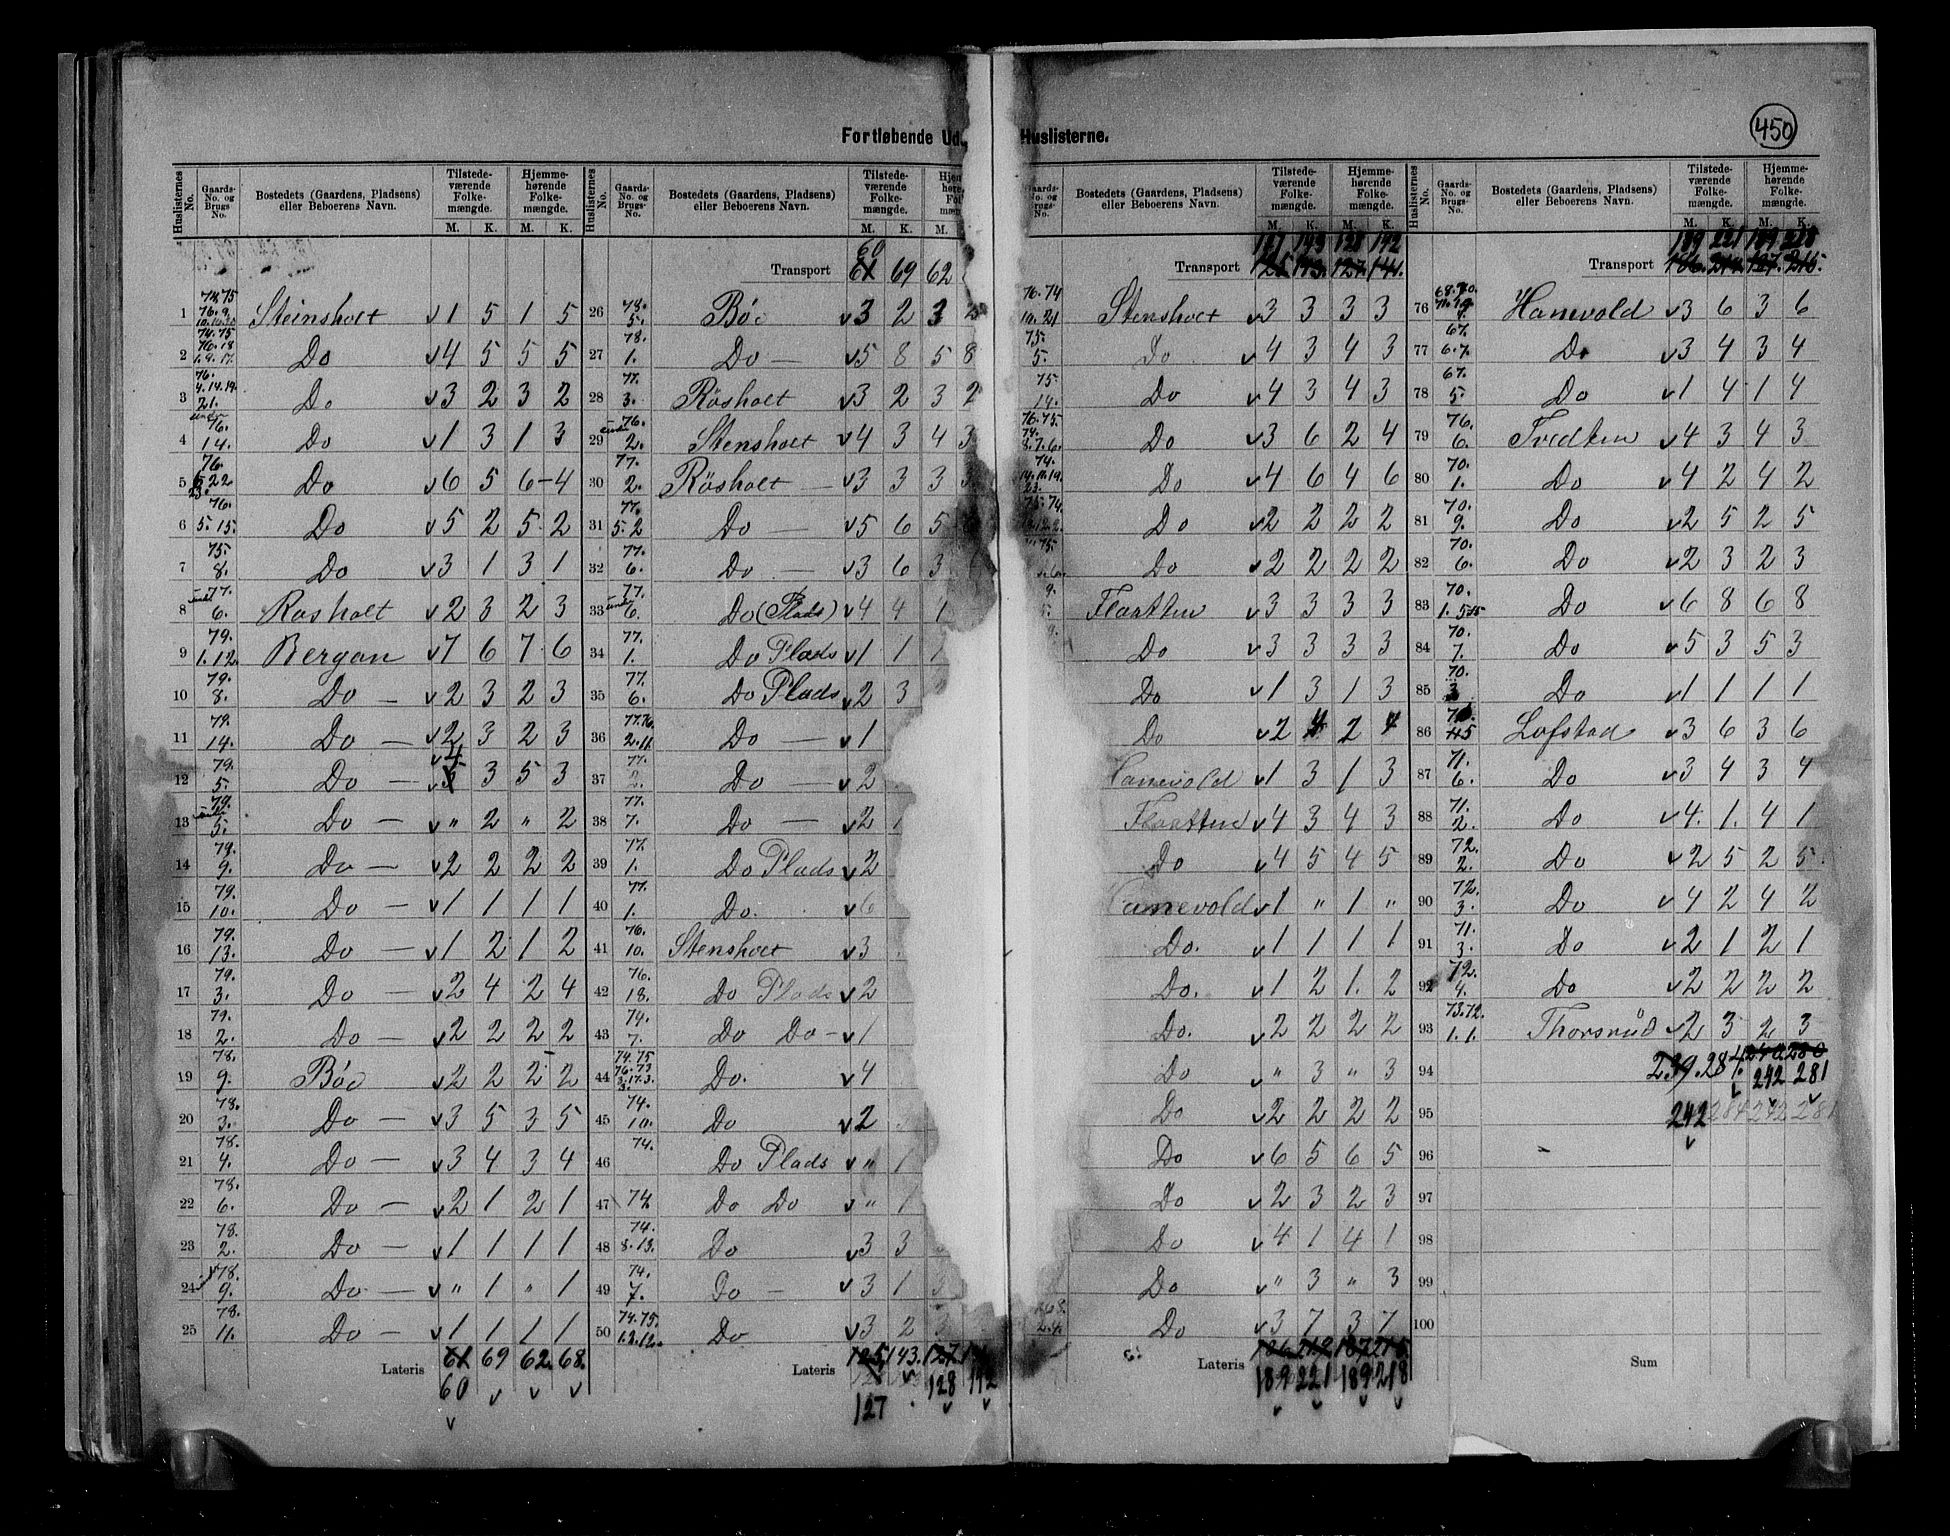 450
Fortløbende Ud
Huslisterne.
Huslisternes No. Gaards-No. og Brugs-No. Bostedets (Gaardens, Pladsens) eller Beboerens Navn. Tilstede-værende Folke-mængde. M. K. Hjemme-hørende Folke-mængde. M. K.
1 74.75 76.9. Steinsholt 1 5 1 5
2 74.75 76.18 1.9.17. Do 4 5 5 5
3 76. 4.14.19. 21. Do 3 2 3 2
4 under 76. 14. Do 1 3 1 3
5 76. 22 23. Do 6 5 6 – 4
6 76. 5.15. Do 5 2 5 2
7 75. 8. Do 3 1 3 1
8 under 77. 6. Rasholt 2 3 2 3
9 79. 1.12. Bergan 7 6 7 6
10 79. 8. Do – 2 3 2 3
11 79. 14. Do – 2 3 2 3
12 79. 5. Do – 4 3 5 3
13 under 79. 5. Do – " 2 " 2
14 79. 9. Do – 2 2 2 2
15 79. 10. Do – 1 1 1 1
16 79. 13. Do – 1 2 1 2
17 79. 3. Do – 2 4 2 4
18 79. 2. Do – 2 2 2 2
19 78. 9. Böe 2 2 2 2
20 78. 3. Do – 3 5 3 5
21 78. 4. Do – 3 4 3 4
22 78. 6. Do – 2 1 2 1
23 78. 2. Do – 1 1 1 1
24 78. 9. Do – " 1 " 1
25 78. 11. Do – 1 1 1 1
Lateris 61 69 62. 68.
60
Huslisternes No. Gaards-No. og Brugs-No. Bostedets (Gaardens, Pladsens) eller Beboerens Navn. Tilstede-værende Folke-mængde. M. K. M.
60
Transport 61 69 62
26 78. 5. Böe 3 2 3
27 78. 1. Do – 5 8 5 8
28 77. 3. Rösholt 3 2 3 2
29 under 76. 2. Stensholt 4 3 4 3
30 77. 2. Rösholt – 3 3 3
31 77. 5.2 Do – 5 6 5
32 77. 6. Do – 3 6 3
33 under 77. 6. Do (Plads) 4 4
34 77. 1. Do Plads 1 1
35 77. 6. Do Plads 2 3
36 77.76. 2.11. Do – 1
37 77. Do – 2
38 77. 7. Do – 2
39 77. 1. Do Plads 2
40 77. 1. Do. 6
41 76. 10. Stensholt 3
42 76. 18. Do Plads 2
43 74. 7. Do Do – 1
44 74.75 76.77 Do. 4
45 74. 10. Do 2
46 74. Do Plads " 1
47 74. Do Do " 1
48 74. 8.13. Do 3 3
49 74. 7. Do – 3 1
50 74.75. 1.2.12. Do 3 2
Lateris 125. 143. 127.
127 128 142
Gaards-No. og Brugs-No. Bostedets (Gaardens, Pladsens) eller Beboerens Navn. Tilstede-værende Folke-mængde. M. K. Hjemme-hørende Folke-mængde. M. K.
127 143 128 142
Transport 125 143. 127. 141.
76.74 19.21 Stensholt 3 3 3 3
75. 5. Do 4 3 4 3
75 14. Do 4 3 4 3
76.75. 74. 8.7.6. Do 3 6 2 4
74. Do 4 6 4 6
Do 2 2 2 2
Do 2 2 2 2
Flaatten 3 3 3 3
Do 3 3 3 3
Do 1 3 1 3
Do 2 4 2 4
anevold 1 3 1 3
Flaatten 4 3 4 3
Do 4 5 4 5
anevold 1 " 1 "
Do. 1 1 1 1
Do. 1 2 1. 2
Do. 2 2 2 2
Do " 3 " 3
Do 2 2 2 2
Do 6 5 6 5
Do 2 3 2 3
Do 4 1 4 1
Do " 3 " 3
Do 3 7 3 7
Lateris
189 221 189 218
Huslisternes No. Gaards-No. og Brugs-No. Bostedets (Gaardens, Pladsens) eller Beboerens Navn. Tilstede-værende Folke-mængde. M. K. Hjemme-hørende Folke-mængde. M. K.
189 221 189 218
Transport 186. 187. 215.
76 Hanevold 3 6 3 6
77 67. 6.7. Do 3 4 3 4
78 67. 5. Do 1 4 1 4
79 76. 6. Tvedten 4 3 4 3
80 70. 1. Do 4 2 4 2
81 70. 9. Do 2 5 2 5
82 70. 6. Do 2 3 2 3
83 70. Do 6 8 6 8
84 70. 7. Do 5 3 5 3
85 70. 3 Do 1 1 1 1
86 Lofstad 3 6 3 6
87 71. 6. Do 3 4 3 4
88 71. 2. Do 4. 1. 4 1
89 72. 2. Do 2 5 2 5
90 72. 3. Do 4 2 4 2
91 71. 3. Do 2 1 2 1
92 72. 4. Do 2 2 2 2
93 73.72. 1.1. Thorsrud 2 3 2 3
94 239. 284. 240 280
242 281
95 242 284 242 281
96
97
98
99
100
Sum